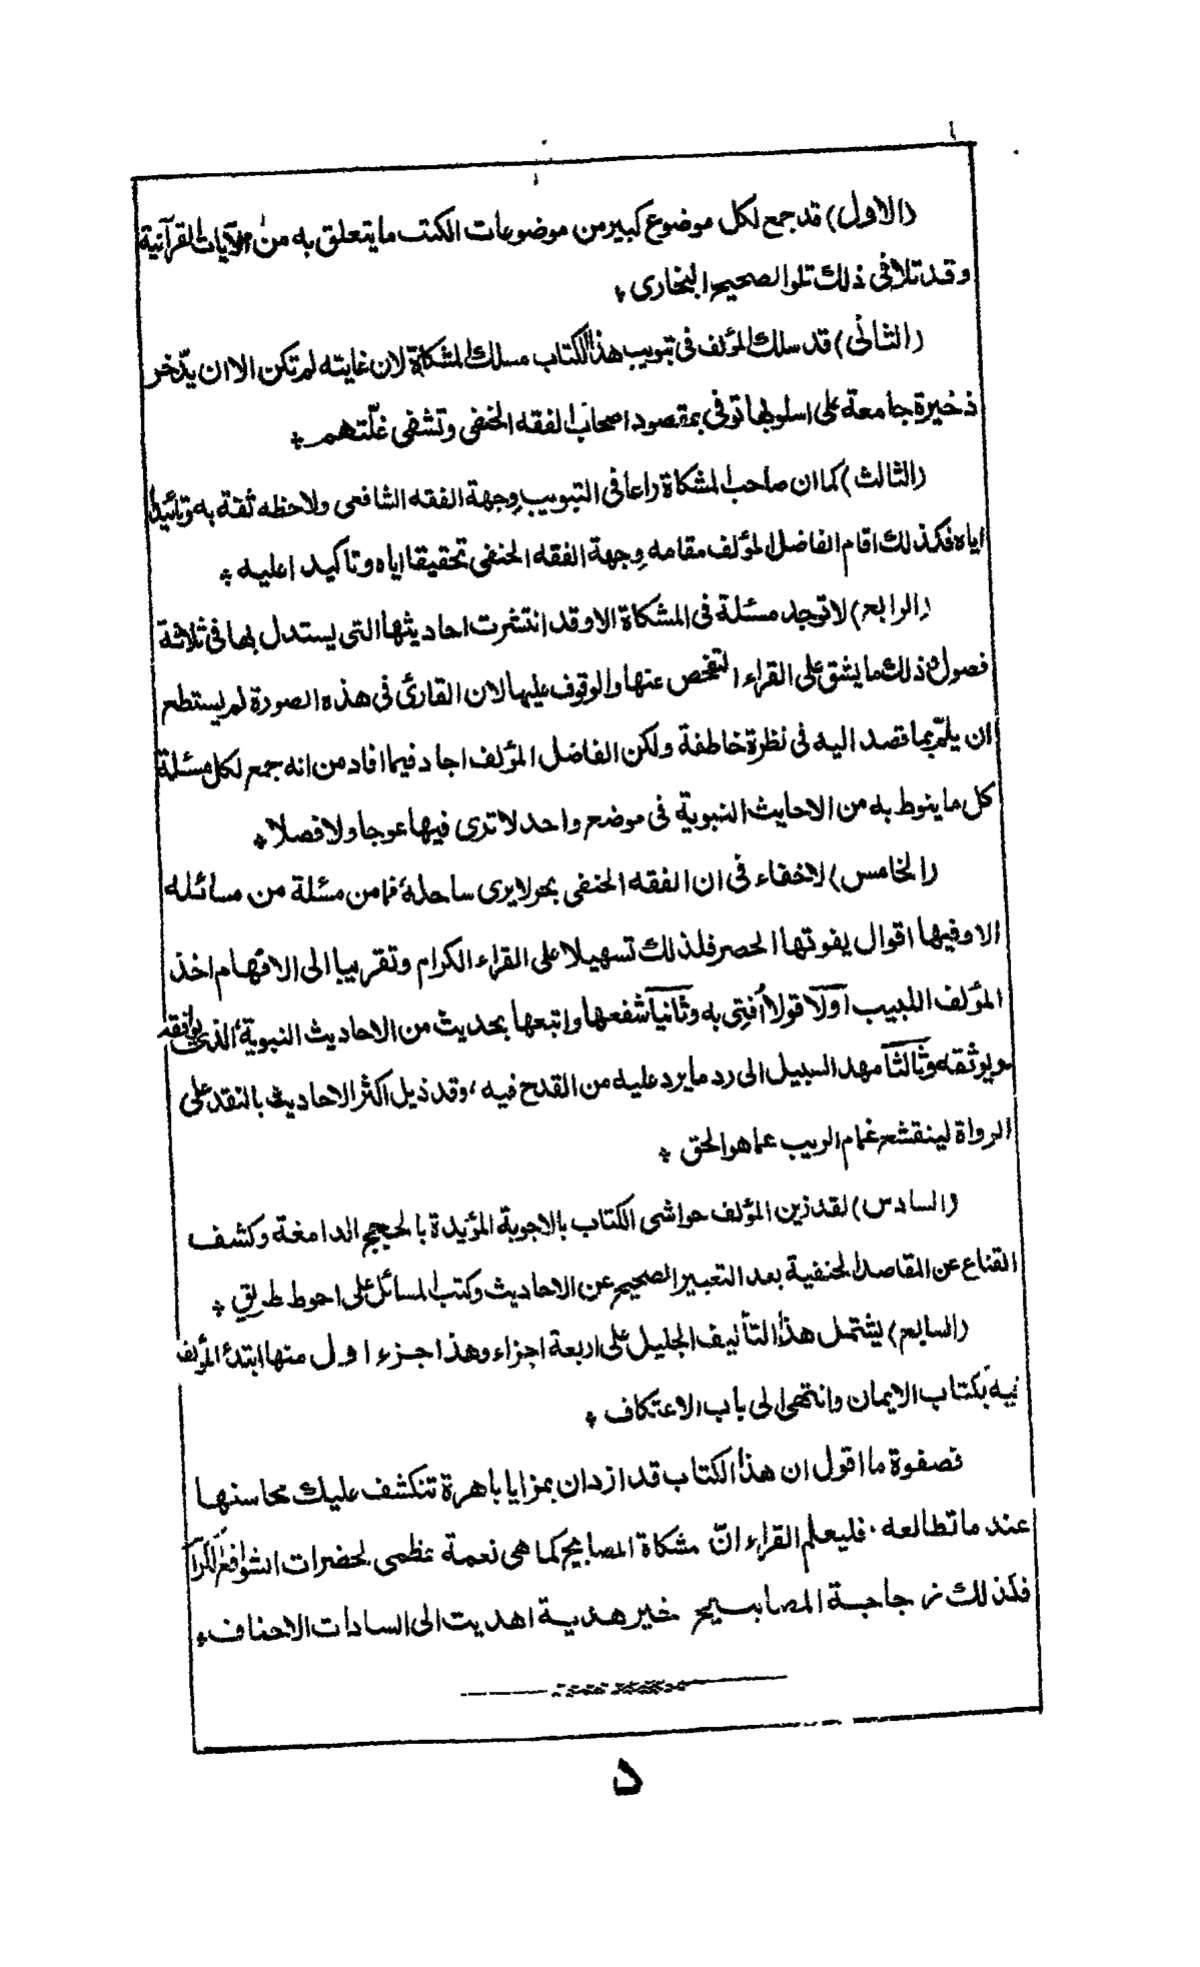 (الاول) قد جمع لكل موضوع كبير من موضوعات الكتب ما يتعلق به من الآيات القرآنية
وقد تلا فى ذلك تلو الصحيح البخارى *
(الثانى) قد سلك المؤلف فى تبويب هذا الكتاب مسلك المشكاة لان غايته لم تكن الا ان يدّخر
ذخيرة جامعة على اسلوبها توفى بمقصود اصحاب الفقه الحنفى وتشفى غلّتهم *
(الثالث) كما ان صاحب المشكاة راعا فى التبويب وجهة الفقه الشافعى ولاحظه ثقة به وتائيدا
اياه فكذلك اقام الفاضل المؤلف مقامه وجهة الفقه الحنفى تحقيقا اياه وتاكيدا عليه *
(الرابع) لا توجد مسئلة فى المشكاة الا وقد انتشرت احاديثها التى يستدل بها فى ثلاثة
فصول وذلك ما يشق على القراء التفحص عنها والوقوف عليها لان القارئ فى هذه الصورة لم يستطع
ان يلمّ بما قصد اليه فى نظرة خاطفة ولكن الفاضل المؤلف اجاد فيما افاد من انه جمع لكل مسئلة
كل ما ينوط به من الاحايث النبوية فى موضع واحد لا ترى فيها عوجا ولا فصلا *
(الخامس) لا خفاء فى ان الفقه الحنفى بحر لا يرى ساحله فما من مسئلة من مسائله
الا وفيها اقوال يفوتها الحصر فلذلك تسهيلا على القراء الكرام وتقريبا الى الافهام اخذ
المؤلف اللبيب اولا قولا أفتى به وثانيا شفعها واتبعها بحديث من الاحاديث النبوية الذى يوافقه
ويوثقه وثالثا مهد السبيل الى رد ما يرد عليه من القدح فيه، وقد ذيل اكثر الاحاديث بالنقد على
الرواة لينقشع غمام الريب عما هو الحق *
(السادس) لقد زين المؤلف حواشى الكتاب بالاجوبة المؤيدة بالحجج الدامغة وكشف
القناع عن المقاصد الحنفية بعد التعبير الصحيح عن الاحاديث وكتب المسائل على احوط طريق *
(السابع) يشتمل هذا التأليف الجليل على اربعة اجزاء وهذا جزء اول منها ابتدء المؤلف
فيه بكتاب الايمان وانتهى الى باب الاعتكاف *
فصفوة ما اقول ان هذا الكتاب قد ازدان بمزايا باهرة تنكشف عليك محاسنها
عند ما تطالعه. فليعلم القراء انّ مشكاة المصابيح كما هى نعمة عظمى لحضرات الشوافع الكرام
فكذلك زجاجة المصابيح خير هدية اهديت الى السادات الاحناف *
د